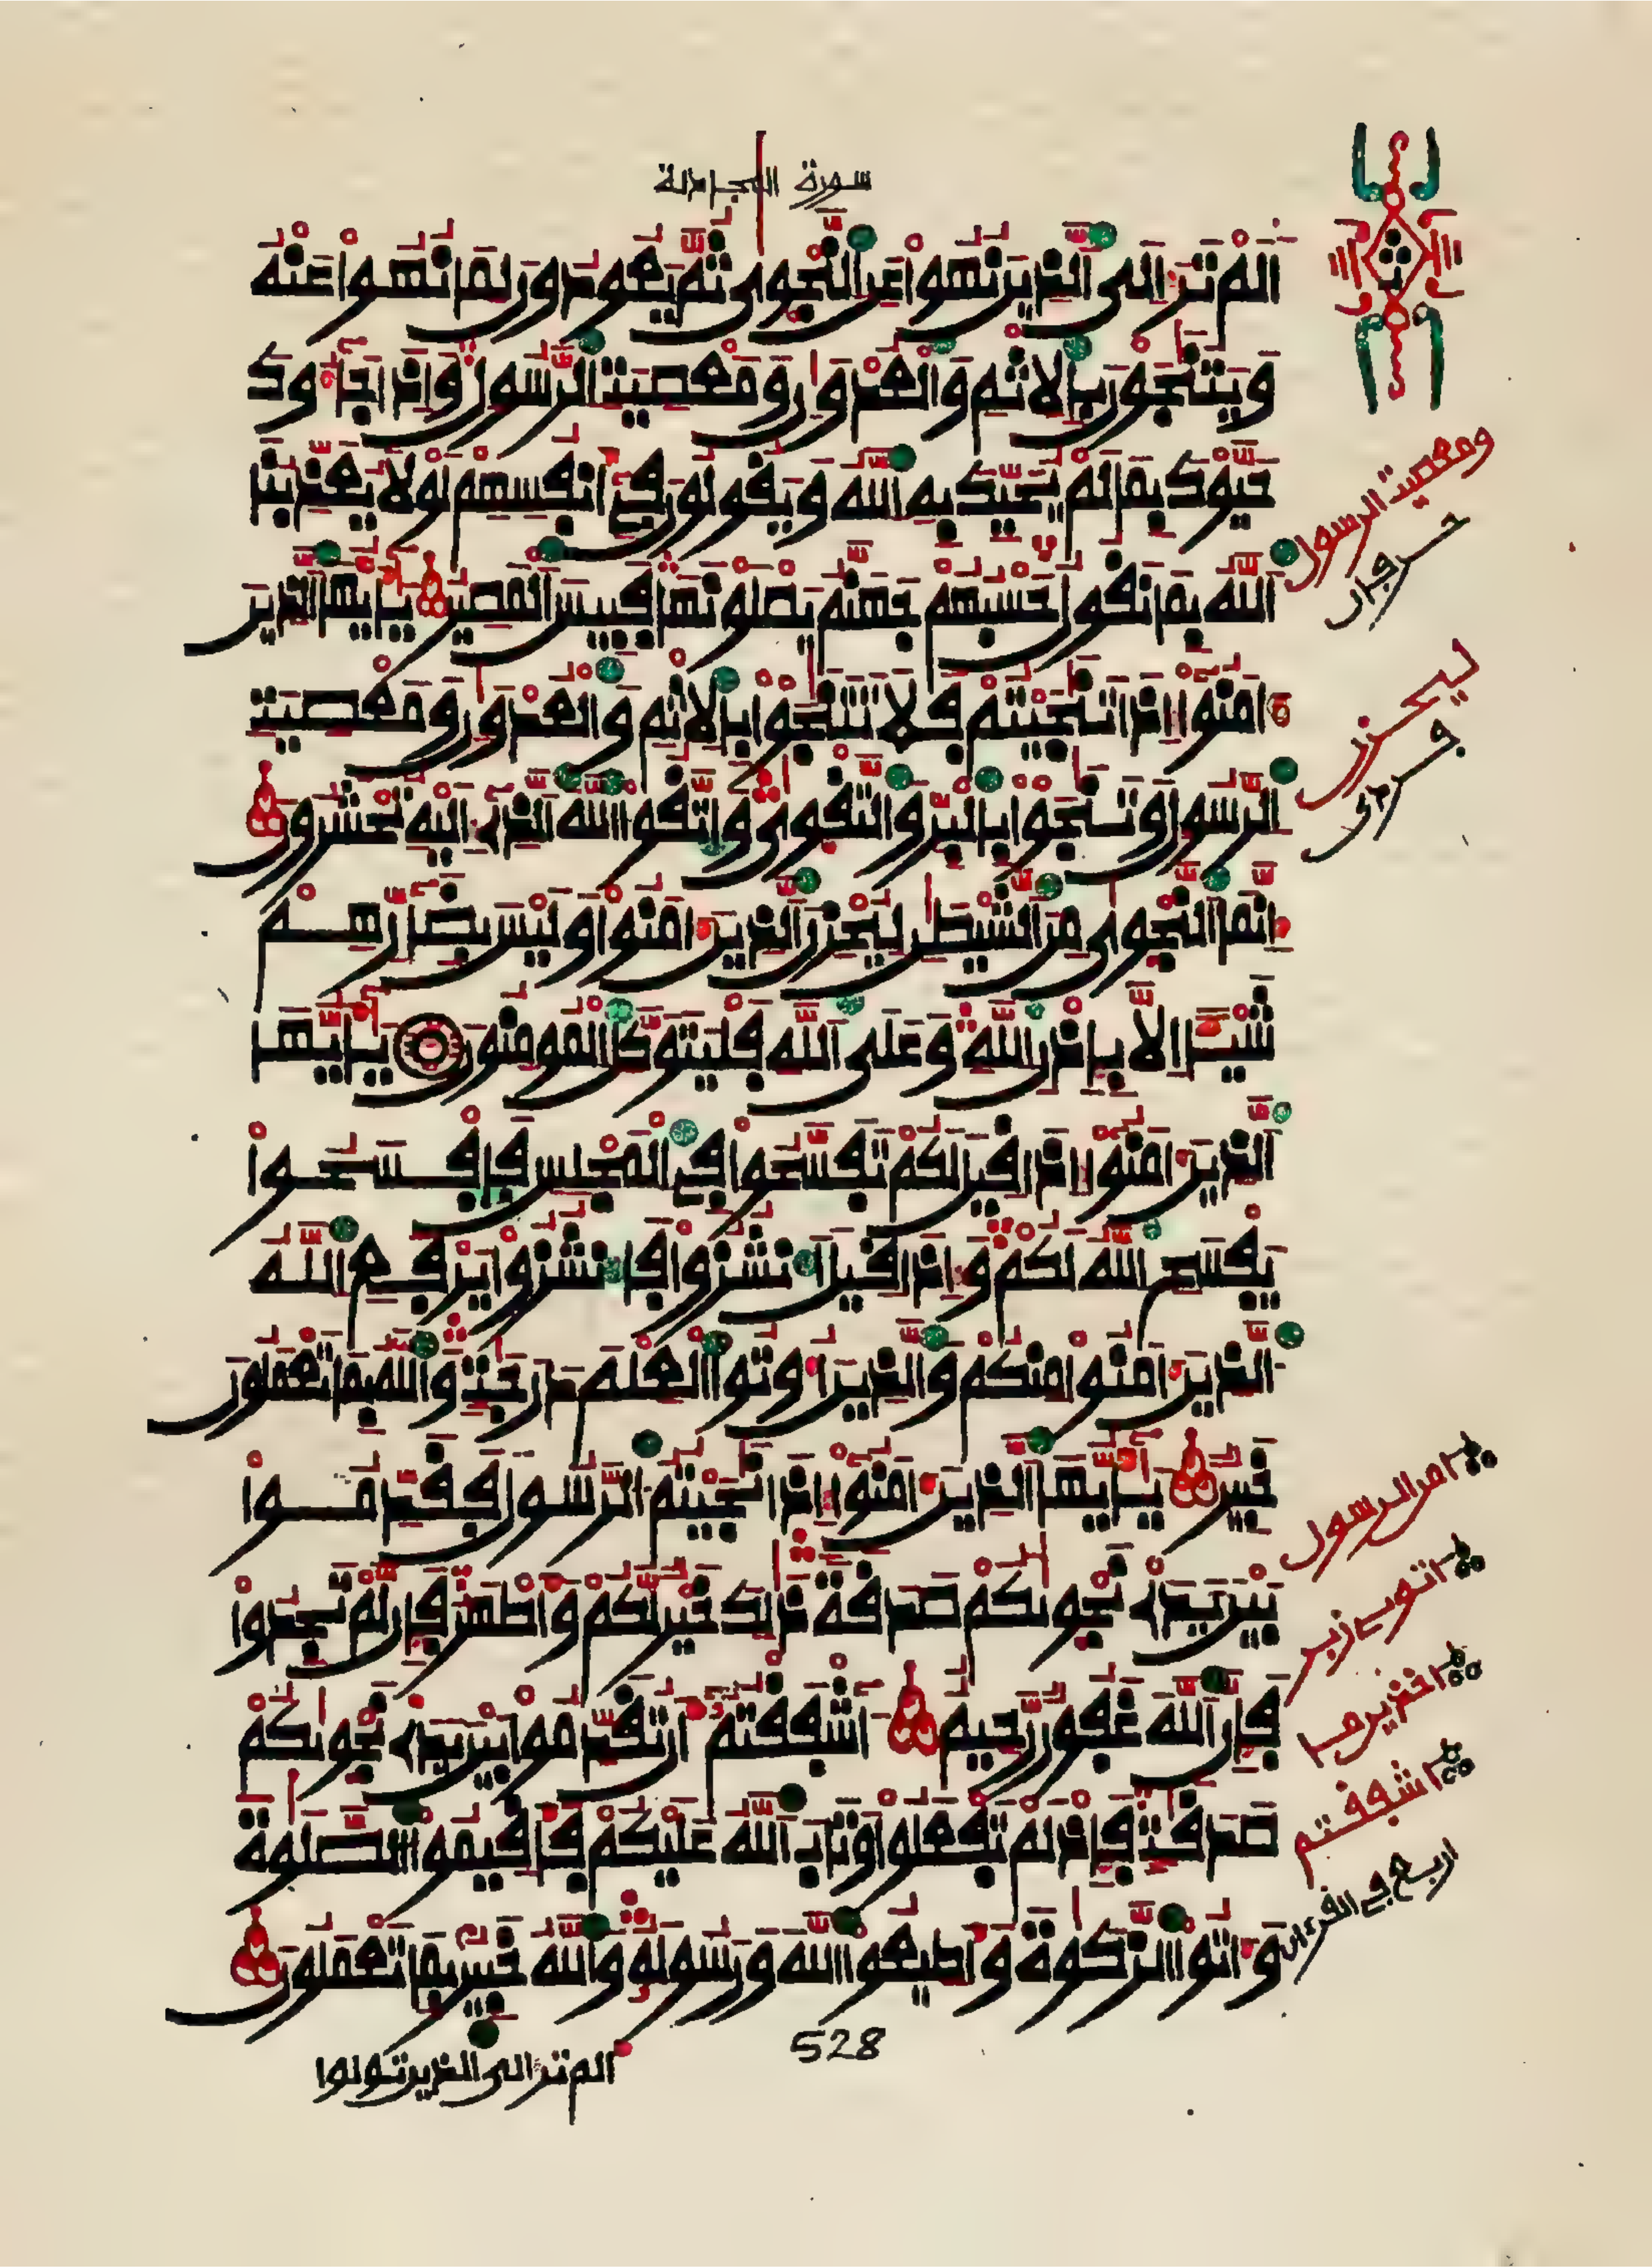 سورة المجادلة
اَلَمْ تَرَ إِلَى اَلذِينَ نُهُواْ عَنِ اِلنَّجْوٜىٰ ثُمَّ يَعُودُونَ لِمَا نُهُواْ عَنْهُ
وَيَتَنَٰجَوْنَ بِالِاثْمِ وَالْعُدْوَٰنِ وَمَعْصِيَتِ اِلرَّسُولِ وَإِذَا جَآءُوكَ
حَيَّوْكَ بِمَا لَمْ يُحَيِّكَ بِهِ اِللَّهُ وَيَقُولُونَ فِےٓ أَنفُسِهِمْ لَوْلَا يُعَذِّبُنَا
اَللَّهُ بِمَا نَقُولُ حَسْبُهُمْ جَهَنَّمُ يَصْلَوْنَهَا فَبِيسَ اَلْمَصِيرُ يَٰٓأَيُّهَا اَلذِينَ
ءَامَنُوٓاْ إِذَا تَنَٰجَيْتُمْ فَلَا تَتَنَٰجَوْاْ بِالِاثْمِ وَالْعُدْوَٰنِ وَمَعْصِيَتِ
اِلرَّسُولِ وَتَنَٰجَوْاْ بِالْبِرِّ وَالتَّقْوٜىٰ وَاتَّقُواْ اُللَّهَ اَلذِےٓ إِلَيْهِ تُحْشَرُونَ
إِنَّمَا اَلنَّجْوٜىٰ مِنَ اَلشَّيْطَٰنِ لِيُحْزِنَ اَلذِينَ ءَامَنُواْ وَلَيْسَ بِضَآرِّهِمْ
شَيْـًٔا اِلَّا بِإِذْنِ اِللَّهِ وَعَلَى اَللَّهِ فَلْيَتَوَكَّلِ اِلْمُومِنُونَ يَٰٓأَيُّهَا
اَلذِينَ ءَامَنُوٓاْ إِذَا قِيلَ لَكُمْ تَفَسَّحُواْ فِے اِلْمَجْلِسِ فَافْسَحُواْ
يَفْسَحِ اِللَّهُ لَكُمْ وَإِذَا قِيلَ اَنشُزُواْ فَانشُزُواْ يَرْفَعِ اِللَّهُ
اُلذِينَ ءَامَنُواْ مِنكُمْ وَالذِينَ أُوتُواْ اُلْعِلْمَ دَرَجَٰتٍ وَاللَّهُ بِمَا تَعْمَلُونَ
خَبِيرٌ يَٰٓأَيُّهَا اَلذِينَ ءَامَنُوٓاْ إِذَا نَٰجَيْتُمُ اُلرَّسُولَ فَقَدِّمُواْ
بَيْنَ يَدَےْ نَجْوٜىٰكُمْ صَدَقَةً ذَٰلِكَ خَيْرٌ لَّكُمْ وَأَطْهَرُ فَإِن لَّمْ تَجِدُواْ
فَإِنَّ اَللَّهَ غَفُورٌ رَّحِيمٌ ءَآشْفَقْتُمُۥٓ أَن تُقَدِّمُواْ بَيْنَ يَدَےْ نَجْوٜىٰكُمْ
صَدَقَٰتٍ فَإِذْ لَمْ تَفْعَلُواْ وَتَابَ اَللَّهُ عَلَيْكُمْ فَأَقِيمُواْ اُلصَّلَوٰةَ
وَءَاتُواْ اُلزَّكَوٰةَ وَأَطِيعُواْ اُللَّهَ وَرَسُولَهُۥ وَاللَّهُ خَبِيرٌۢ بِمَا تَعْمَلُونَ
528
الم تر الى الذين تولوا
ومعصيت الرسول
ليحزن
امن الرسول
اشفقتم
اربع في القرءان